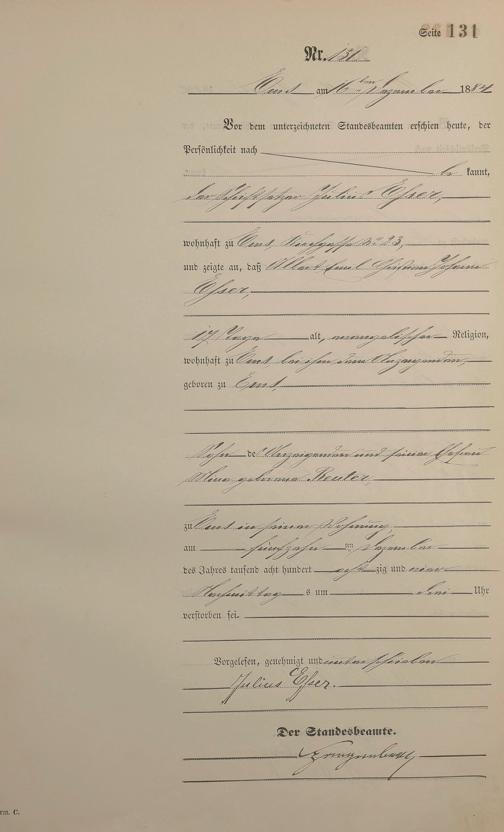 Seite 131
Nr. 131
Ems am 16ten Dezember 1884
Vor dem unterzeichneten Standesbeamten erschien heute, der
Persönlichkeit nach
be kannt,
der Schriftsetzer Julius Esser,
wohnhaft zu Ems, Kirchgasse No 23,
und zeigte an, daß Albert Emil Johann
Esser,
17 Tage alt, evangelischer Religion,
wohnhaft zu Ems bei ihm dem Anzeigenden,
geboren zu Ems,
Sohn des Anzeigenden und seiner Ehefrau
geborene Reuter,
zu Ems in seiner Wohnung,
am fünfzehn ten Dezember
des Jahres tausend acht hundert acht zig und vier
Nachmittags um drei Uhr
verstorben sei.
Vorgelesen, genehmigt und unterschrieben
Julius Esser.
Der Standesbeamte.
rm. C.